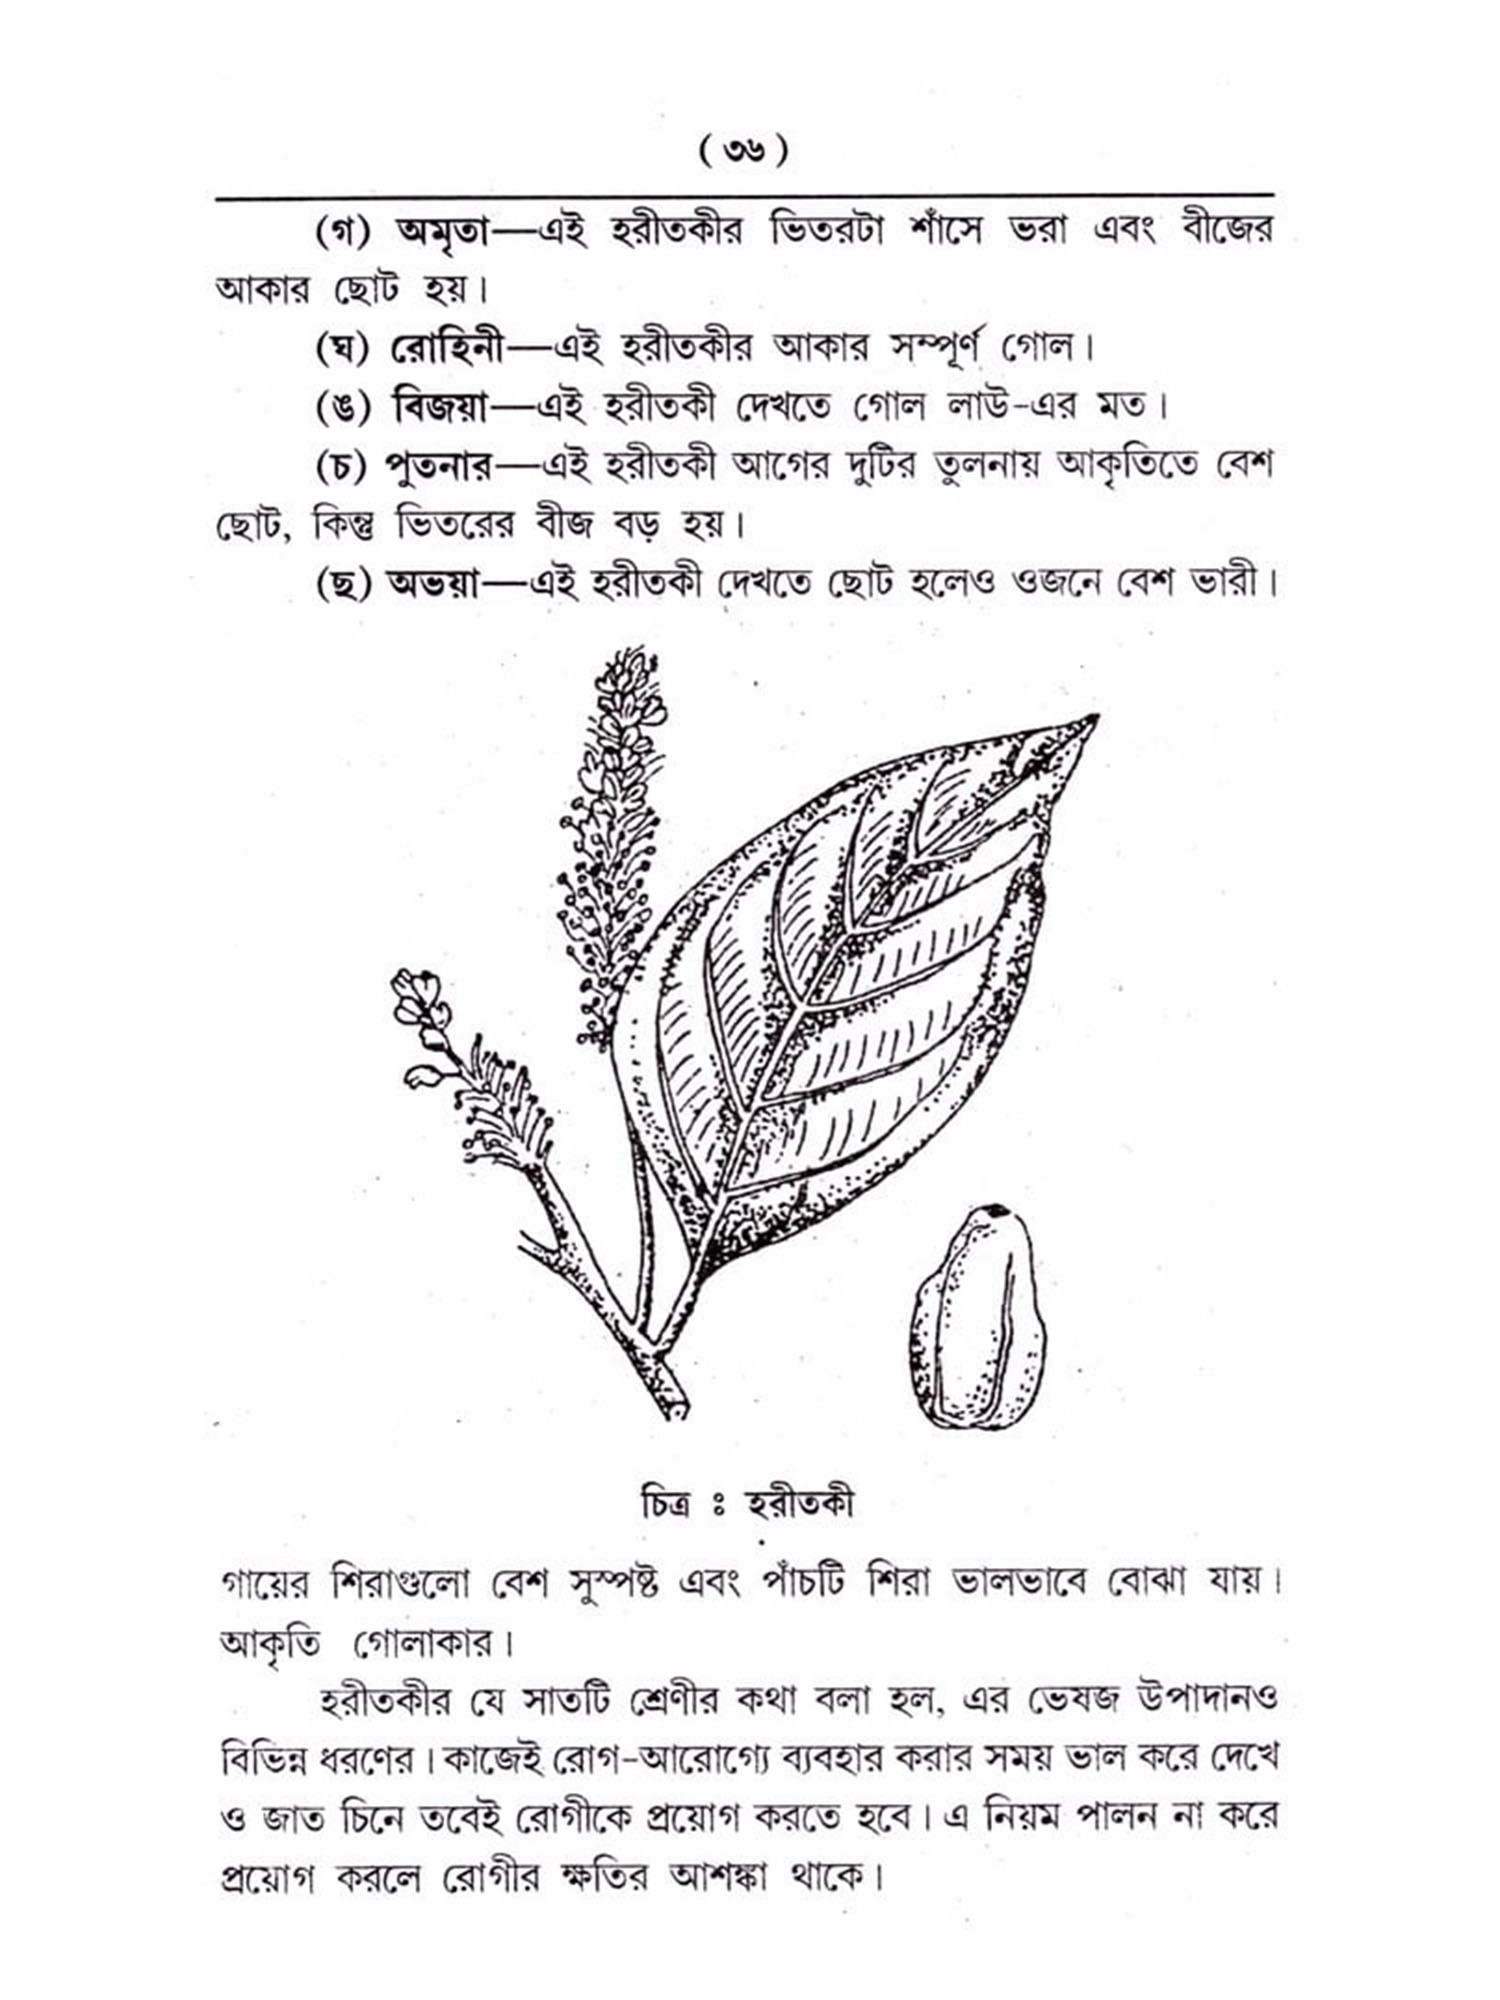 ( ৩৬ )
(গ) অমৃতা—এই হরীতকীর ভিতরটা শাঁসে ভরা এবং বীজের
আকার ছোট হয়।
(ঘ) রোহিনী—এই হরীতকীর আকার সম্পূর্ণ গোল।
(ঙ) বিজয়া—এই হরীতকী দেখতে গোল লাউ-এর মত।
(চ) পুতনার—এই হরীতকী আগের দুটির তুলনায় আকৃতিতে বেশ
ছোট, কিন্তু ভিতরের বীজ বড় হয়।
(ছ) অভয়া—এই হরীতকী দেখতে ছোট হলেও ওজনে বেশ ভারী।
চিত্র ঃ হরীতকী
গায়ের শিরাগুলো বেশ সুস্পষ্ট এবং পাঁচটি শিরা ভালভাবে বোঝা যায়।
আকৃতি গোলাকার।
হরীতকীর যে সাতটি শ্রেণীর কথা বলা হল, এর ভেষজ উপাদানও
বিভিন্ন ধরণের। কাজেই রোগ-আরোগ্যে ব্যবহার করার সময় ভাল করে দেখে
ও জাত চিনে তবেই রোগীকে প্রয়োগ করতে হবে। এ নিয়ম পালন না করে
প্রয়োগ করলে রোগীর ক্ষতির আশঙ্কা থাকে।